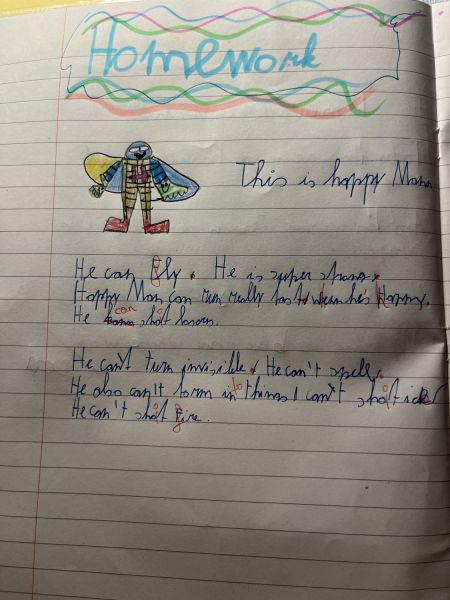 Homework
This is happy Man
He can fly. He is super strong.
Happy Man can run really fast when he's Happy.
He can shot lasers.
He can't turn invisible. He can't spell.
He also can't form into things I can't shot ice
He can't shot fire.